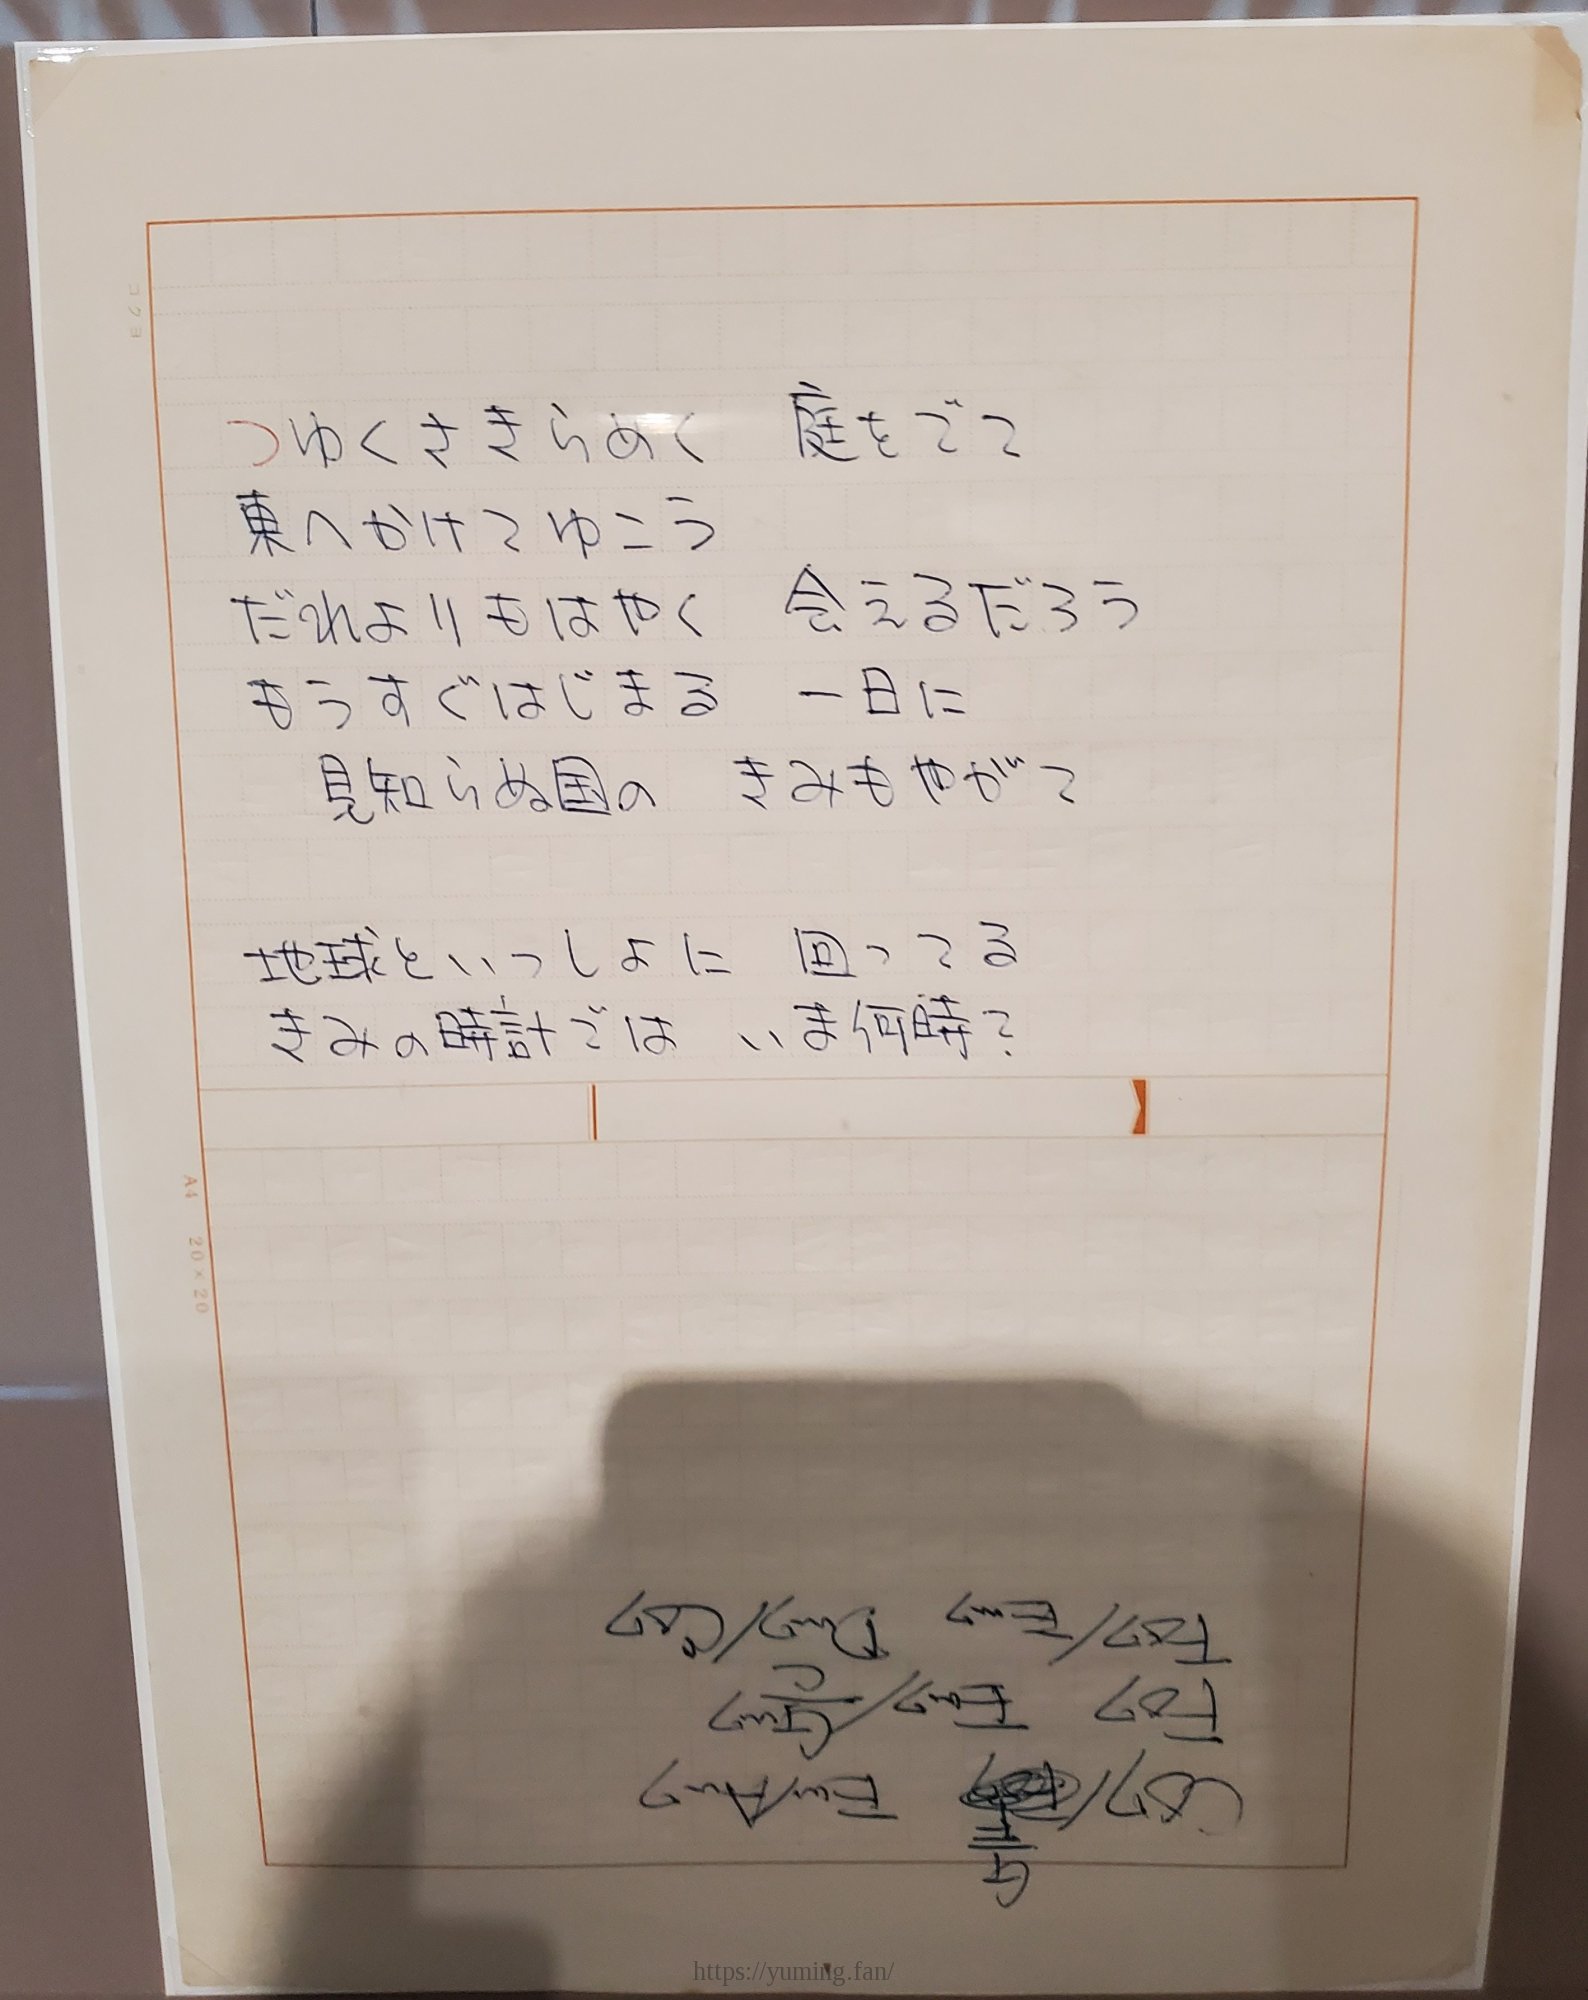 つゆくさきらめく 庭をでて
東へかけてゆこう
だれよりもはやく 会えるだろう
もうすぐはじまる 一日に
見知らぬ国の きみもやがて
地球といっしょに 回ってる
きみの時計では いま何時?
コクヨ
A4 20×20
https://yuming.fan/